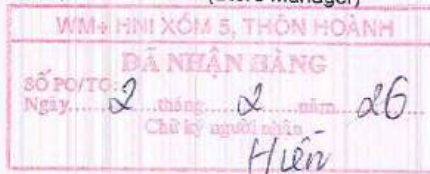 (Store Manager)
WM+ HNI XÓM 5, THÔN HOÀNH
ĐÃ NHẬN HÀNG
SỐ PO/TO:
Ngày 2 tháng 2 năm 26
Chữ ký người nhận
Hiền